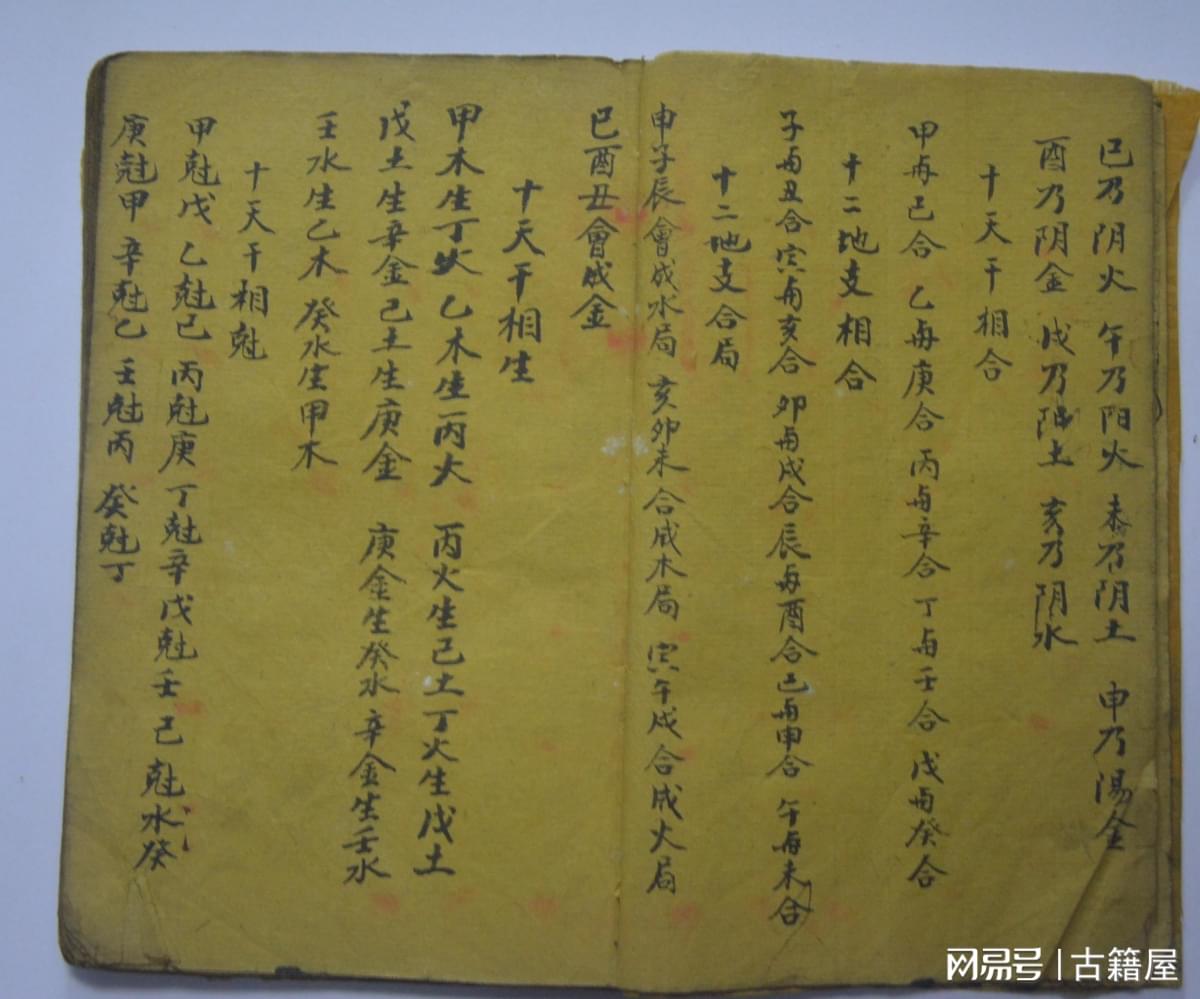 巳乃阴火 午乃阳火 未乃阴土 申乃陽金
酉乃阴金 戌乃阳土 亥乃阴水
十天干相合
甲與己合 乙與庚合 丙與辛合 丁與壬合 戊與癸合
十二地支相合
子與丑合 寅與亥合 卯與戌合 辰與酉合 巳與申合 午與未合
十二地支合局
申子辰會成水局 亥卯未合成木局 寅午戌合成火局
巳酉丑會成金
十天干相生
甲木生丁火 乙木生丙火 丙火生己土 丁火生戊土
戊土生辛金 己土生庚金 庚金生癸水 辛金生壬水
壬水生乙木 癸水生甲木
十天干相尅
甲尅戊 乙尅己 丙尅庚 丁尅辛 戊尅壬 己尅水癸
庚尅甲 辛尅乙 壬尅丙 癸尅丁
网易号 | 古籍屋